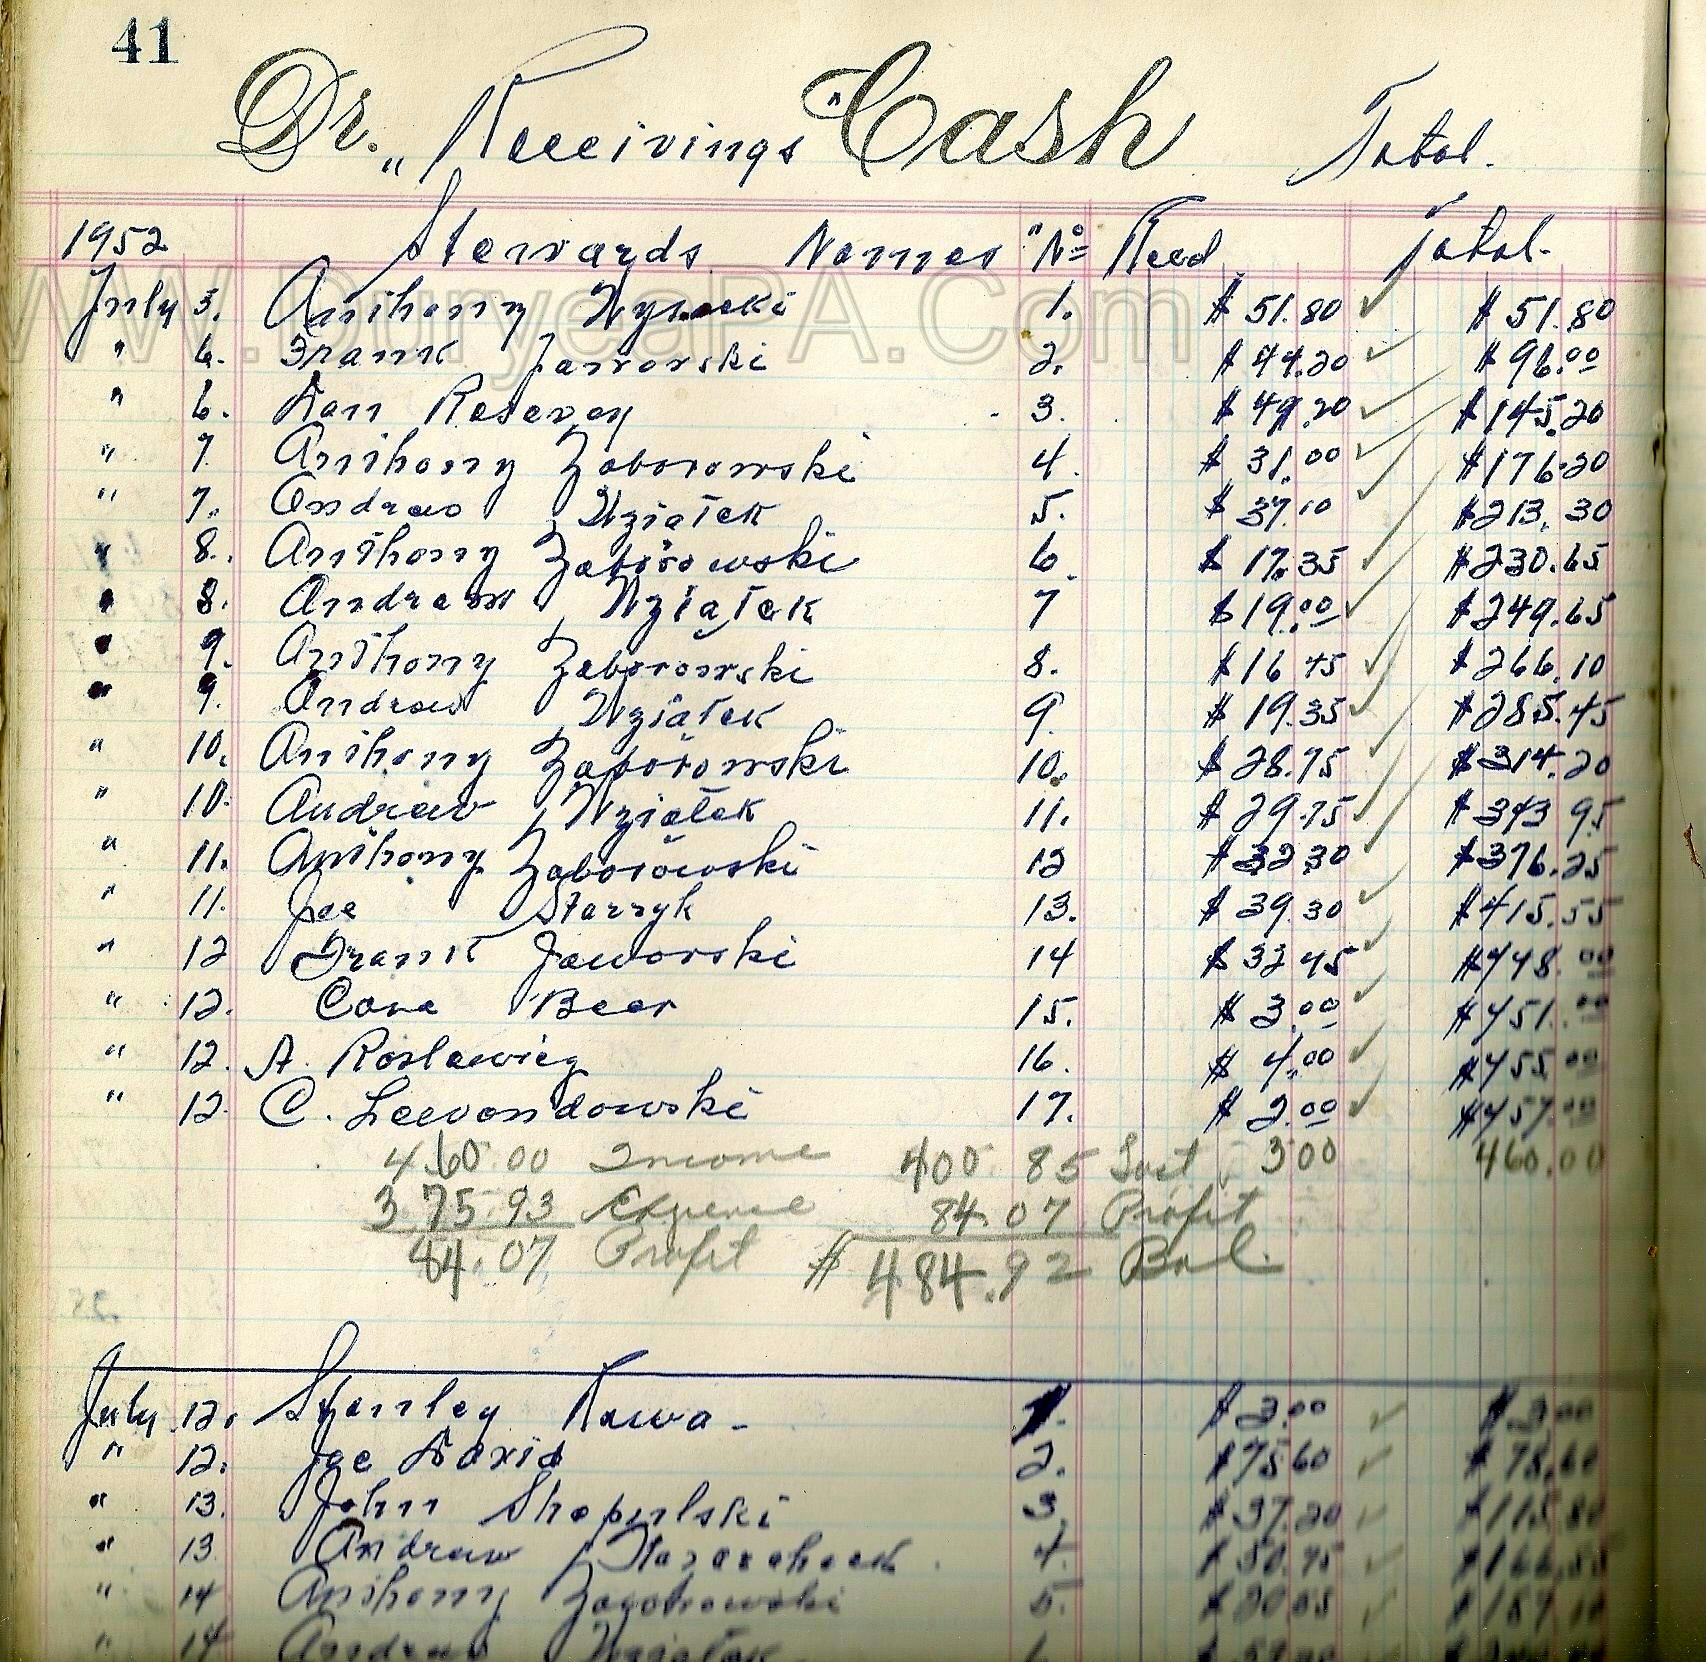 41
Dr. "Receivings" Cash Total.
1952 Stewards Names "No Recd Total.
July 5. Anthony Wysocki 1. $51.80 ✓ $51.80
" 6. Frank Jaworski 2. $44.20 ✓ $96.00
" 6. Dan 3. $49.20 ✓ $145.20
" 7 Anthony Zaborowski 4. $31.00 ✓ $176.20
" 7. Andraw Wziatek 5. $37.10 ✓ $213.30
" 8. Anthony Zaborowski 6. $17.35 ✓ $230.65
" 8. Andraw Wziatek 7 $19.00 ✓ $249.65
" 9. Anthony Zaborowski 8. $16 45 ✓ $266.10
" 9. Andraw Wziatek 9. $19.35 ✓ $285.45
" 10. Anthony Zaborowski 10. $28.75 ✓ $314.20
" 10. Andraw Wziatek 11. $29.75 ✓ $343 95
" 11. Anthony Zaborowski 12 $32 30 ✓ $376.25
" 11. Joe Starzyk 13. $39.30 ✓ $415.55
" 12 Frank Jaworski 14 $32 45 ✓ $448.00
" 12. Cone Beer 15. $3.00 ✓ $451.00
" 12. A. Roslawicz 16. $4.00 ✓ $455 00
" 12. C. Leevandowski 17. $2.00 ✓ $457.00
460.00 Income 400.85 3 00 460.00
375.93 Expense 84.07 Profit
84.07 Profit $484.92 Bal.
July 12. Stanley Kawa - 1. $3.00 ✓ $3.00
" 12. Joe David 2. $75.60 ✓ $78.60
" 13. John Shopulski 3. $37.20 ✓ $115.80
" 13 Andraw 4. $50.75 ✓ $166.55
" 14 Anthony 5. $20.55 ✓ $187.10
" 14 Andraw Wziatek
www.DuryeaPA.com